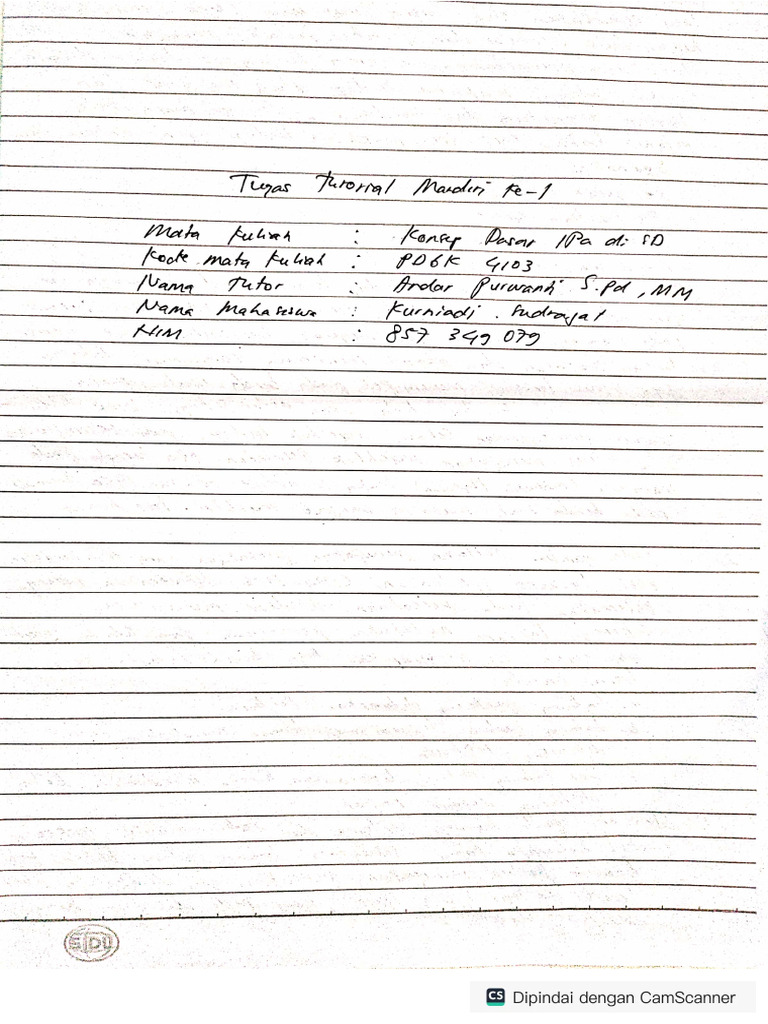 Tugas Tutorial Mandiri ke-1
Mata kuliah : Konsep Dasar IPA di SD
Kode mata kuliah : PDGK 4103
Nama Tutor : Ardar Purwanti S.Pd, MM
Nama Mahasiswa : Kurniadi. Sudrajat
NIM : 857 349 079
SIDU
CS Dipindai dengan CamScanner